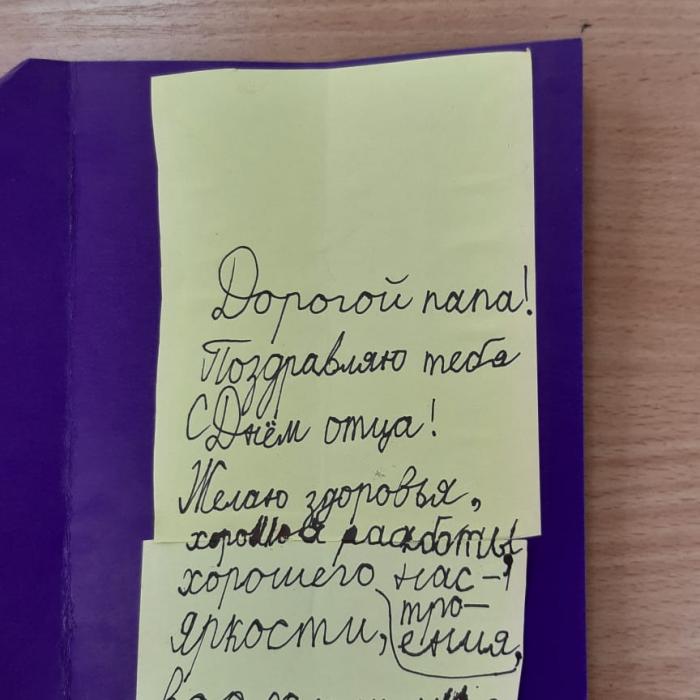 Дорогой папа!
Поздравляю тебя
С Днём отца!
Желаю здоровья,
работы,
хорошего нас-
тро-
яркости, ения,